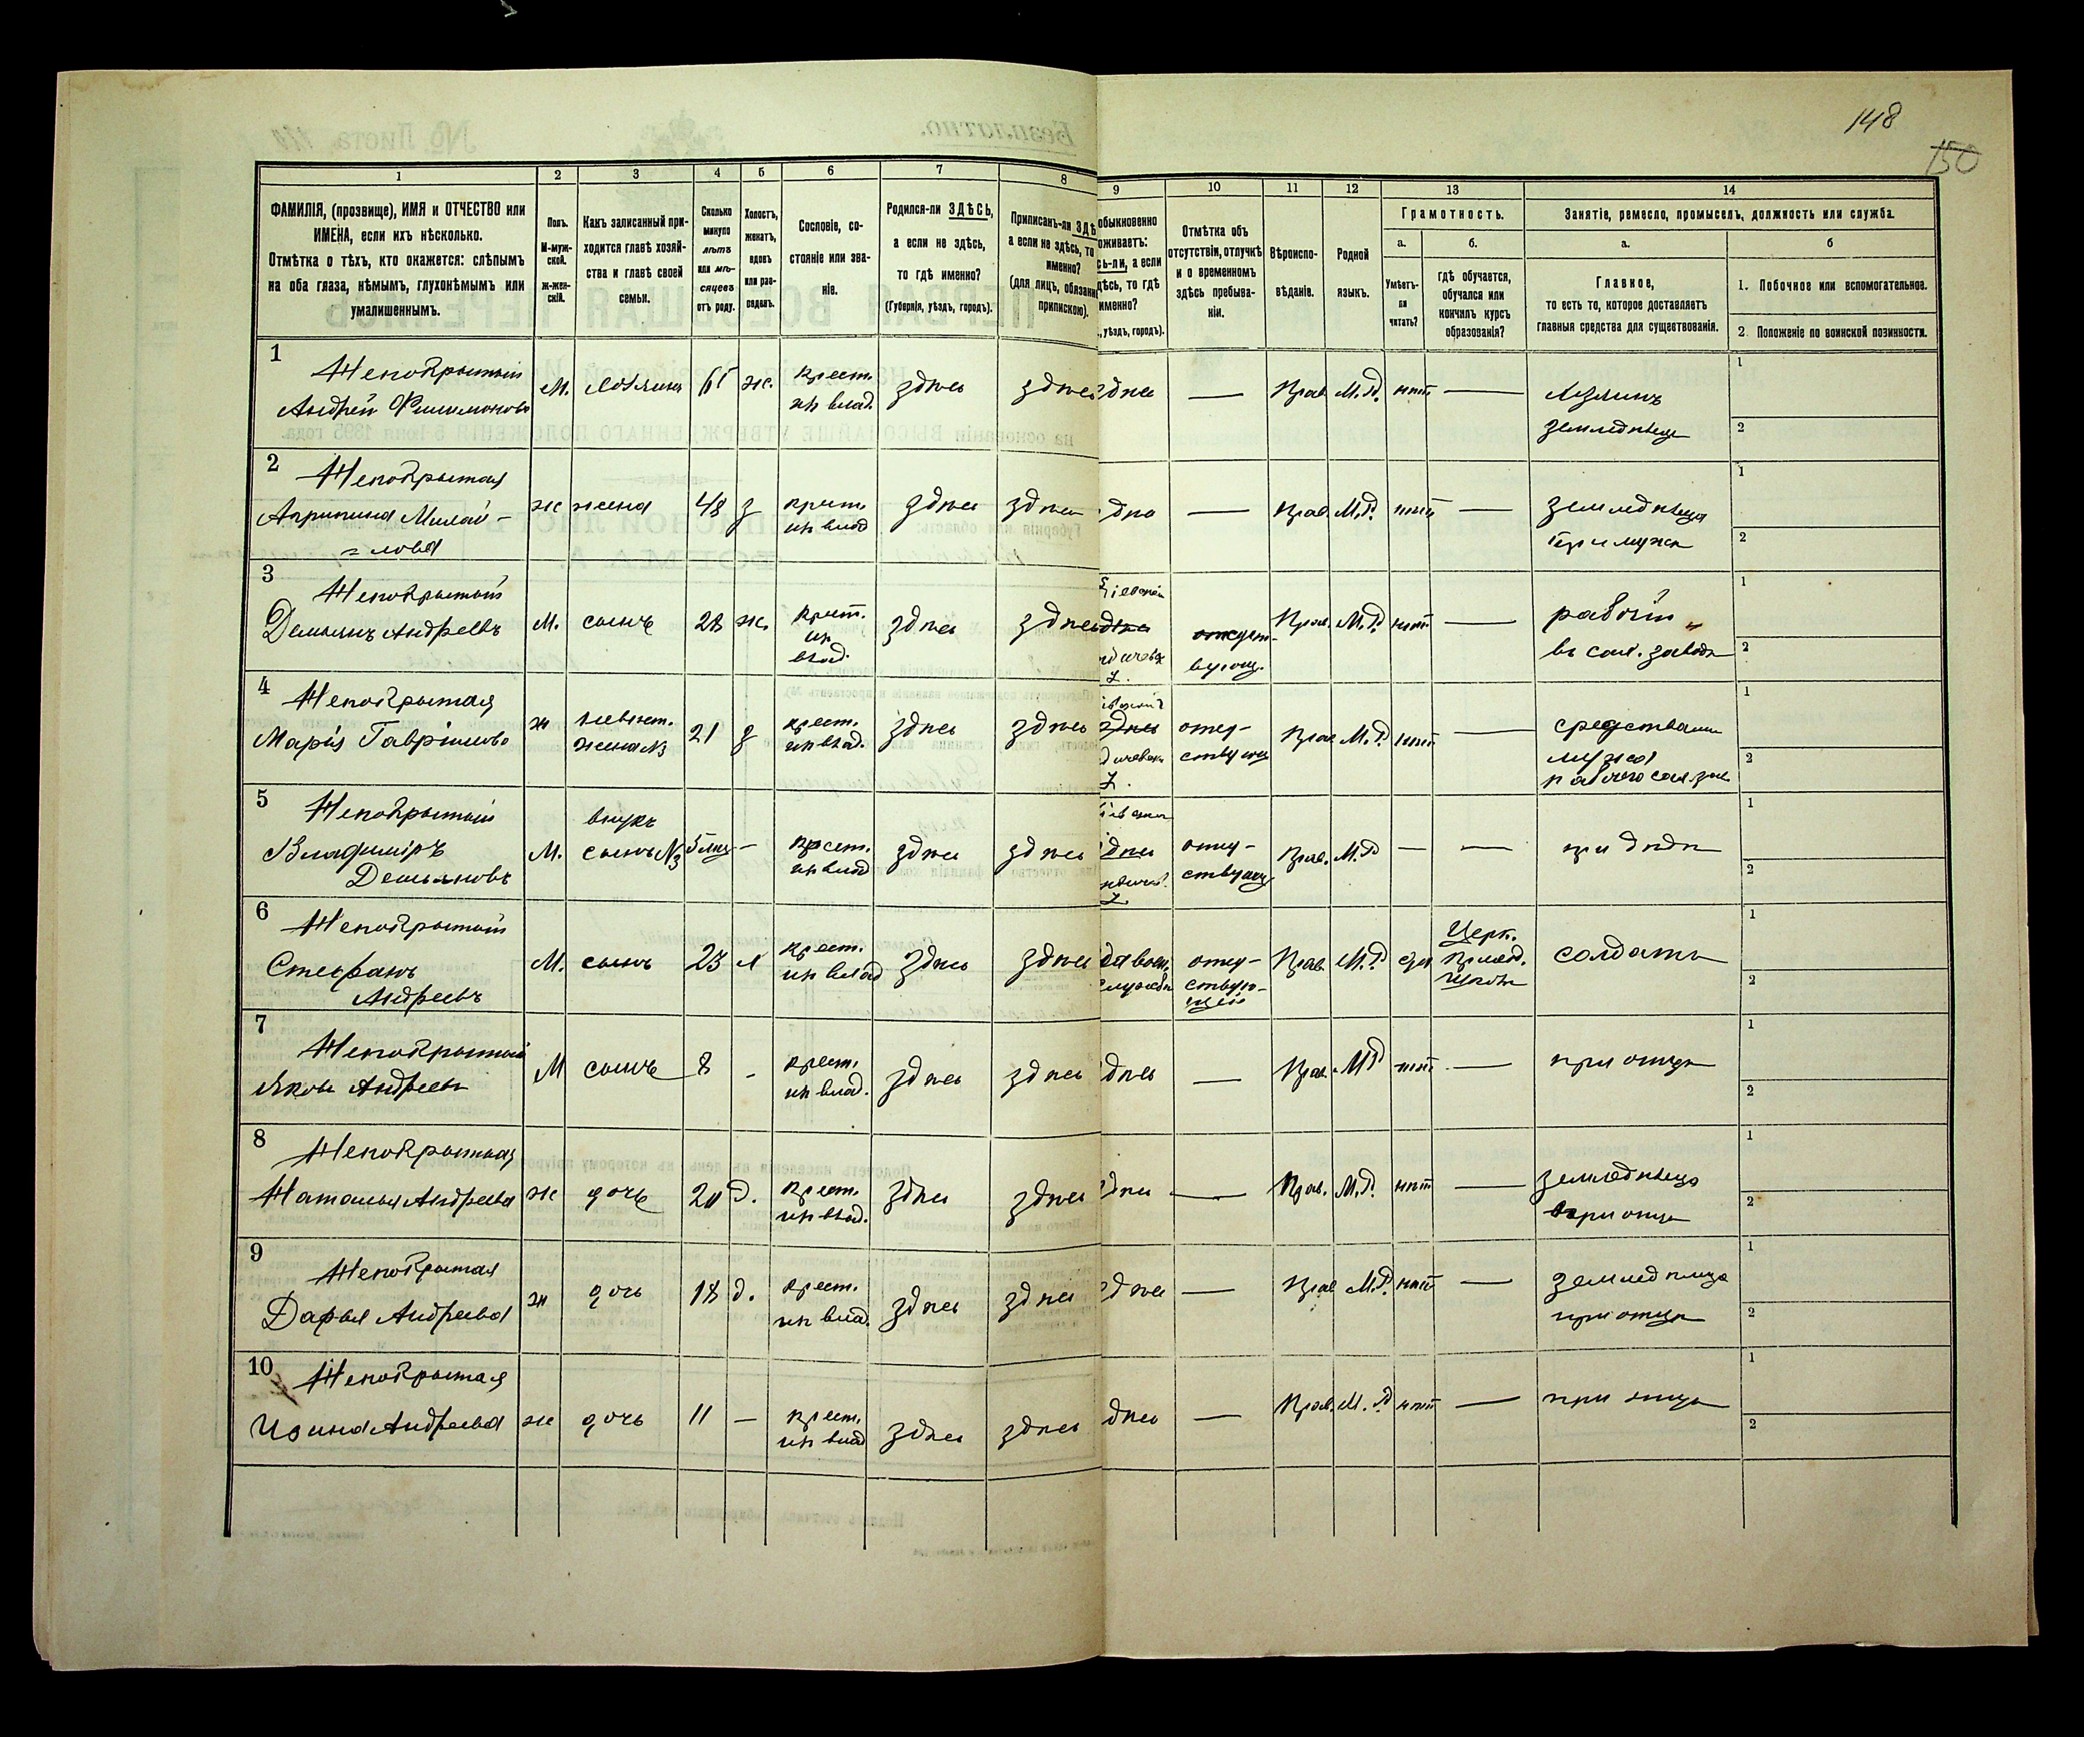 148
150
1 2 3 4 5 6 7 8 9 10 11 12 13 14
ФАМИЛІЯ, (прозвище), ИМЯ и ОТЧЕСТВО или
ИМЕНА, если ихъ нѣсколько.
Отмѣтка о тѣхъ, кто окажется: слѣпымъ
на оба глаза, нѣмымъ, глухонѣмымъ или
умалишеннымъ.
Полъ.
М-муж-
ской.
ж-жен-
скій.
Какъ записанный при-
ходится главѣ хозяй-
ства и главѣ своей
семьи.
Сколько
минуло
лѣтъ
или мѣ-
сяцевъ
отъ роду.
Холостъ,
женатъ,
вдовъ
или раз-
веденъ.
Сословіе, со-
стояніе или зва-
ніе.
Родился-ли ЗДѢСЬ,
а если не здѣсь,
то гдѣ именно?
(Губернія, уѣздъ, городъ).
Приписанъ-ли ЗДѢ
а если не здѣсь, то
именно?
(для лицъ, обязанн
припискою).
обыкновенно
оживаетъ:
сь-ли, а если
дѣсь, то гдѣ
именно?
, уѣздъ, городъ).
Отмѣтка объ
отсутствіи, отлучкѣ
и о временномъ
здѣсь пребыва-
ніи.
Вѣроиспо-
вѣданіе.
Родной
языкъ.
Грамотность.
а.
Умѣетъ-
ли
читать?
б.
гдѣ обучается,
обучался или
кончилъ курсъ
образованія?
Занятіе, ремесло, промыселъ, должность или служба.
а.
Главное,
то есть то, которое доставляетъ
главныя средства для существованія.
б
1. Побочное или вспомогательное.
2. Положеніе по воинской повинности.
1
Непокрытый
Андрей Филимоновъ
М. хозяинъ ж. крест.
ин влад. здѣсь здѣсь здѣсь — Прав. М.Р. нѣтъ —
Хозяинъ
земледѣлецъ
1
2
2
Непокрытая
Агрипина Михай-
=лова
ж жена 48 з крест.
ин влад здѣсь здѣсь — Прав. М.Р. нѣтъ —
земледѣлица
при мужѣ
1
2
3
Непокрытый
Демьянъ Андреевъ
М. сынъ 28 ж. крест.
ин
влад. здѣсь здѣсь
отсутст-
вующ.
Прав. М.Р. нѣтъ —
рабочій
въ сах. заводѣ
1
2
4
Непокрытая
Марія Гавриілова
ж невѣст.
жена №3 21 з крест.
ин влад. здѣсь здѣсь здѣсь
отсу-
ствующ
Прав М.Р. нѣтъ —
средствами
мужа
рабочего сах. зав.
1
2
5
Непокрытый
Владиміръ
Демьяновъ
М. внукъ
сынъ №3 5 мѣц — крест.
ин влад здѣсь здѣсь
отсу-
ствующ
Прав. М.Р — —
при дѣдѣ
1
2
6
Непокрытый
Стефанъ
Андреевъ
М. сынъ 23 х крест.
ин влад здѣсь здѣсь
воен.
службѣ
отсу-
ствую-
щій
Прав. М.Р.
Церк.
приход.
школѣ
солдатъ
1
2
7
Непокрытый
Яковъ Андреевъ
М сынъ 8 - крест.
ин влад. здѣсь здѣсь здѣсь — Прав. МР нѣтъ — при отцѣ
1
2
8
Непокрытая
Наталья Андреева
ж дочь 20 д. крест.
ин влад. здѣсь здѣсь здѣсь — Прав. М.Р. нѣтъ —
земледѣлица
при отцѣ
1
2
9
Непокрытая
Дарья Андреева
ж дочь 18 д. крест.
ин влад. здѣсь здѣсь здѣсь — Прав М.Р. нѣтъ —
земледѣлица
при отцѣ
1
2
10
Непокрытая
Андреева
ж дочь 11 — крест.
ин влад здѣсь здѣсь здѣсь — Прав. М.Р нѣтъ — при отцѣ
1
2